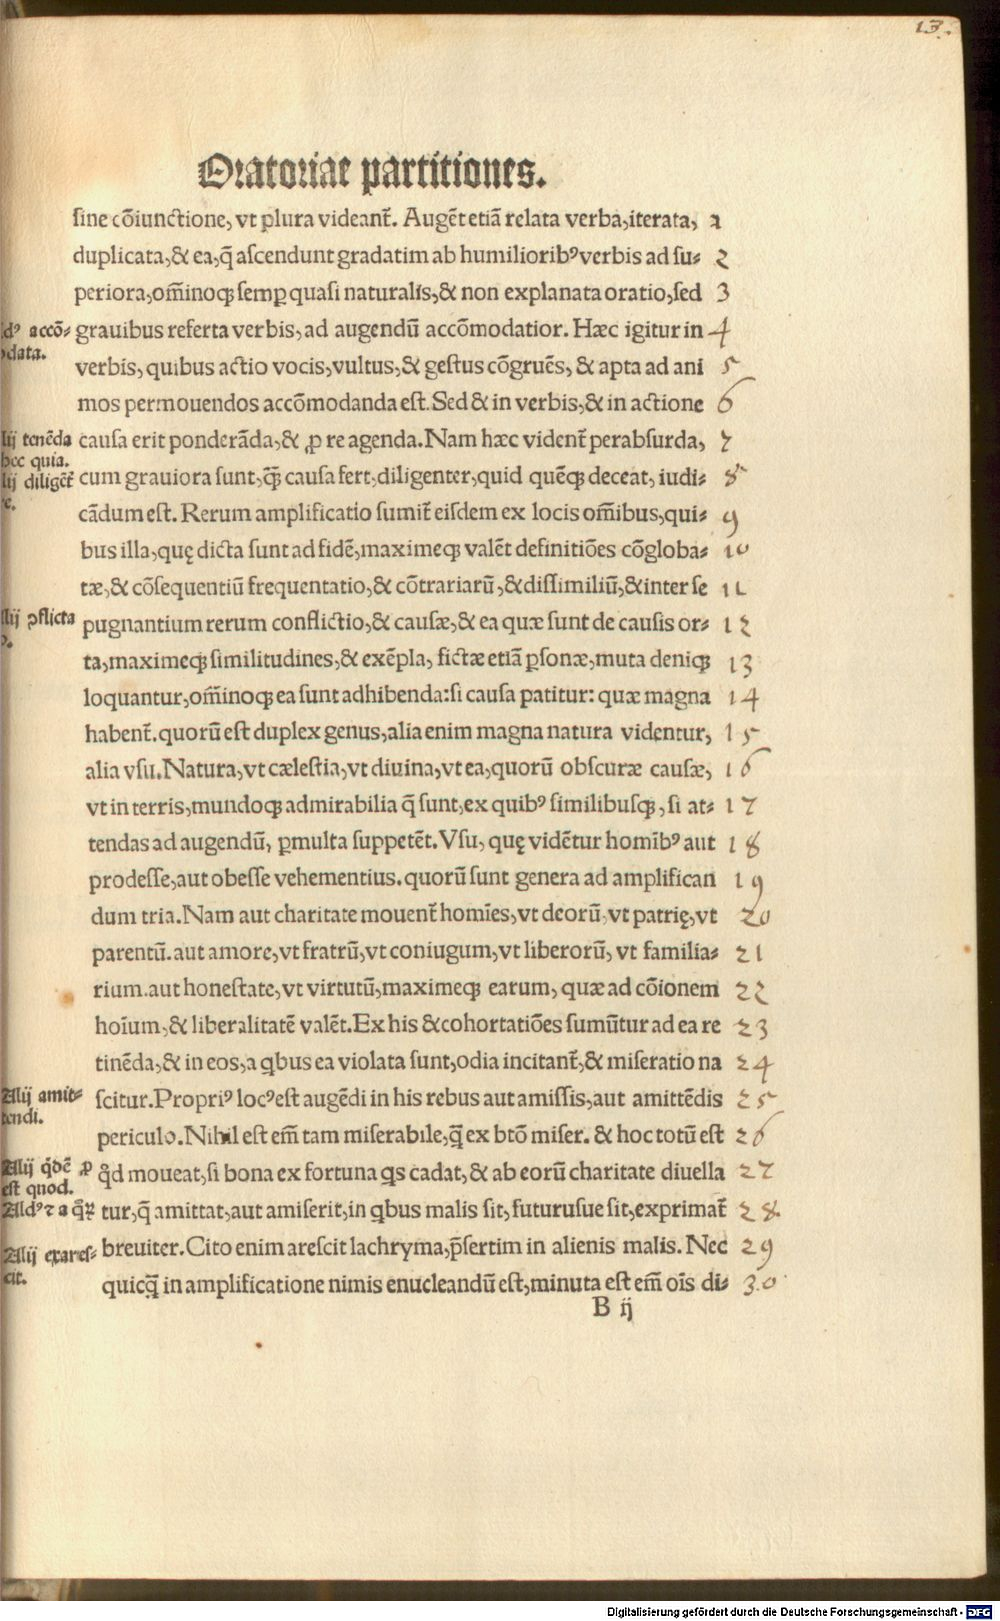 13.
Oratoriae partitiones.
sine cõiunctione, vt plura videanẗ. Augẽt etiã relata verba, iterata, 1
duplicata, & ea, q̃ ascendunt gradatim ab humiliorib⁹ verbis ad su⸗ 2
periora, om̃inoqꝫ semꝑ quasi naturalis, & non explanata oratio, sed 3
d⁹ accõ⸗
grauibus referta verbis, ad augendũ accõmodatior. Hæc igitur in 4
data.
verbis, quibus actio vocis, vultus, & gestus cõgruẽs, & apta ad ani 5
mos permouendos accõmodanda est. Sed & in verbis, & in actione 6
lij tenẽda
causa erit ponderãda, & ꝓ re agenda. Nam hæc videnẗ perabsurda, 7
hec quia.
lij diligẽẗ
cum grauiora sunt, q̃ꝫ causa fert, diligenter, quid quẽqꝫ deceat, iudi⸗ 8
e.
cãdum est. Rerum amplificatio sumiẗ eisdem ex locis om̃ibus, qui⸗ 9
bus illa, quę dicta sunt ad fidẽ, maximeqꝫ valẽt definitiões cõgloba⸗ 10
tæ, & cõsequentiũ frequentatio, & cõtrariarũ, & dissimiliũ, & inter se 11
lij ꝯflicta
pugnantium rerum conflictio, & causæ, & ea quæ sunt de causis or⸗ 12
ta, maximeqꝫ similitudines, & exẽpla, fictæ etiã ꝑsonæ, muta deniqꝫ 13
loquantur, om̃inoqꝫ ea sunt adhibenda: si causa patitur: quæ magna 14
habenẗ. quorũ est duplex genus, alia enim magna natura videntur, 15
alia vsu. Natura, vt cælestia, vt diuina, vt ea, quorũ obscuræ causæ, 16
vt in terris, mundoqꝫ admirabilia q̃ sunt, ex quib⁹ similibusqꝫ, si at⸗ 17
tendas ad augendũ, ꝑmulta suppetẽt. Vsu, quę vidẽtur homĩb⁹ aut 18
prodesse, aut obesse vehementius. quorũ sunt genera ad amplifican 19
dum tria. Nam aut charitate mouenẗ homĩes, vt deorũ, vt patrię, vt 20
parentũ. aut amore, vt fratrũ, vt coniugum, vt liberorũ, vt familia⸗ 21
rium. aut honestate, vt virtutũ, maximeqꝫ earum, quæ ad cõionem 22
hoĩum, & liberalitatẽ valẽt. Ex his & cohortatiões sumũtur ad ea re 23
tinẽda, & in eos, a qbus ea violata sunt, odia incitanẗ, & miseratio na 24
Alij amit⸗
scitur. Propri⁹ loc⁹ est augẽdi in his rebus aut amissis, aut amittẽdis 25
tendi.
periculo. Nihil est em̃ tam miserabile, q̃ ex btõ miser. & hoc totũ est 26
Alij qdẽ ꝓ
qd̃ moueat, si bona ex fortuna qs cadat, & ab eorũ charitate diuella 27
est quod.
Ald⁹ ⁊ a q̃ꝝ
tur, q̃ amittat, aut amiserit, in qbus malis sit, futurusue sit, exprimaẗ 28.
Alij exares⸗
breuiter. Cito enim arescit lachryma, p̃sertim in alienis malis. Nec 29
cit.
quicq̃ in amplificatione nimis enucleandũ est, minuta est em̃ oĩs di⸗ 30
B ij
Digitalisierung gefördert durch die Deutsche Forschungsgemeinschaft - DFG